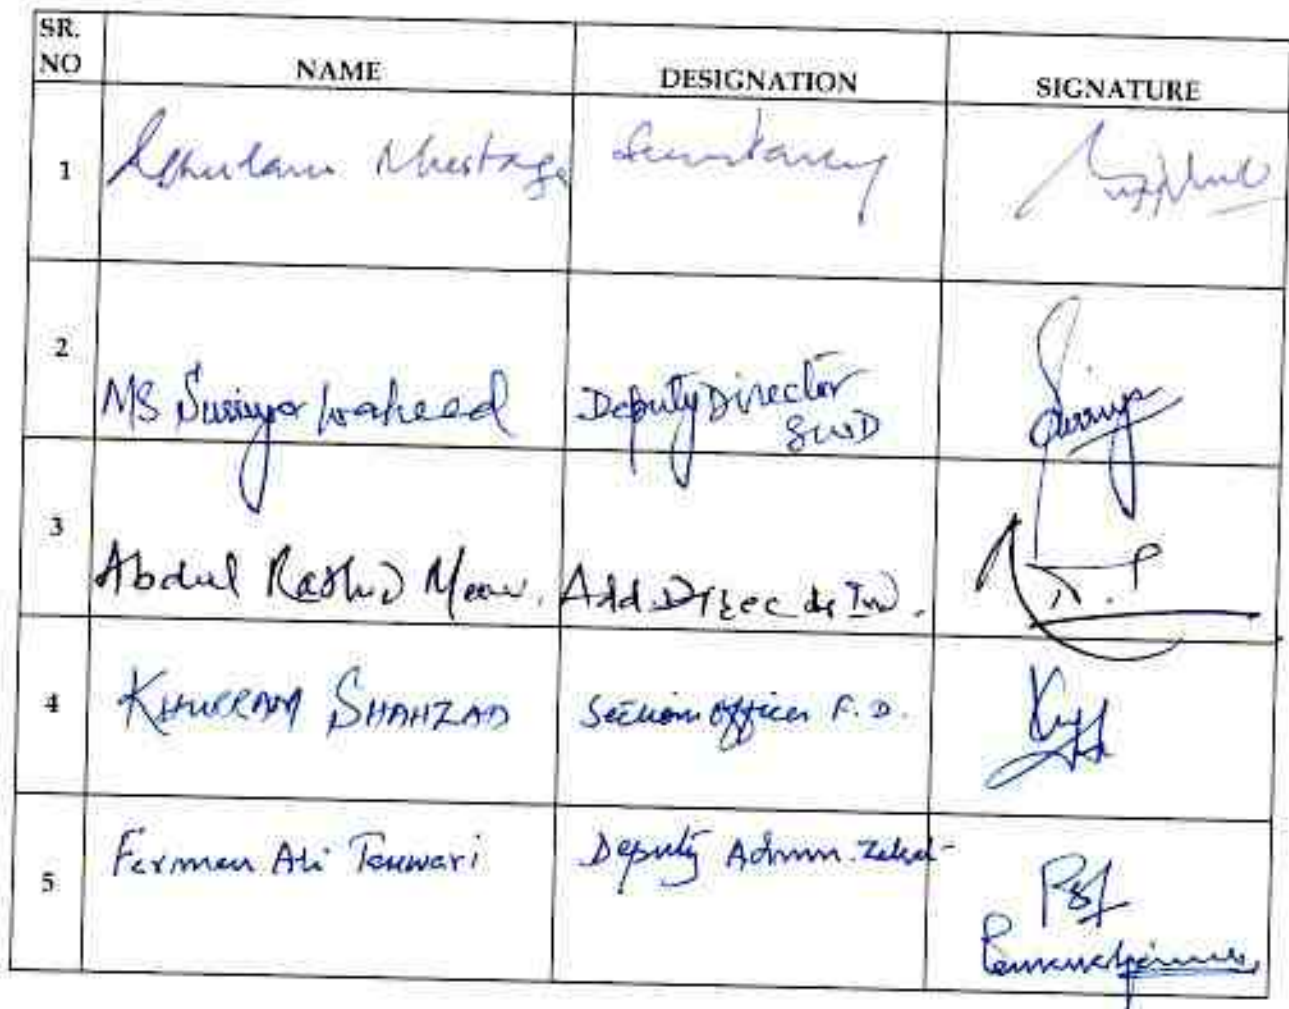 SR.
NO NAME DESIGNATION SIGNATURE
1 Ghulam Mustafa Secretary
2
MS Surriya Waheed Deputy Director
SWD
3
Abdul Rashid Add Direc
4 KHURRAM SHAHZAD Section officer F.D.
5 Ferman Ali Tanwari Deputy Admn. Zakat